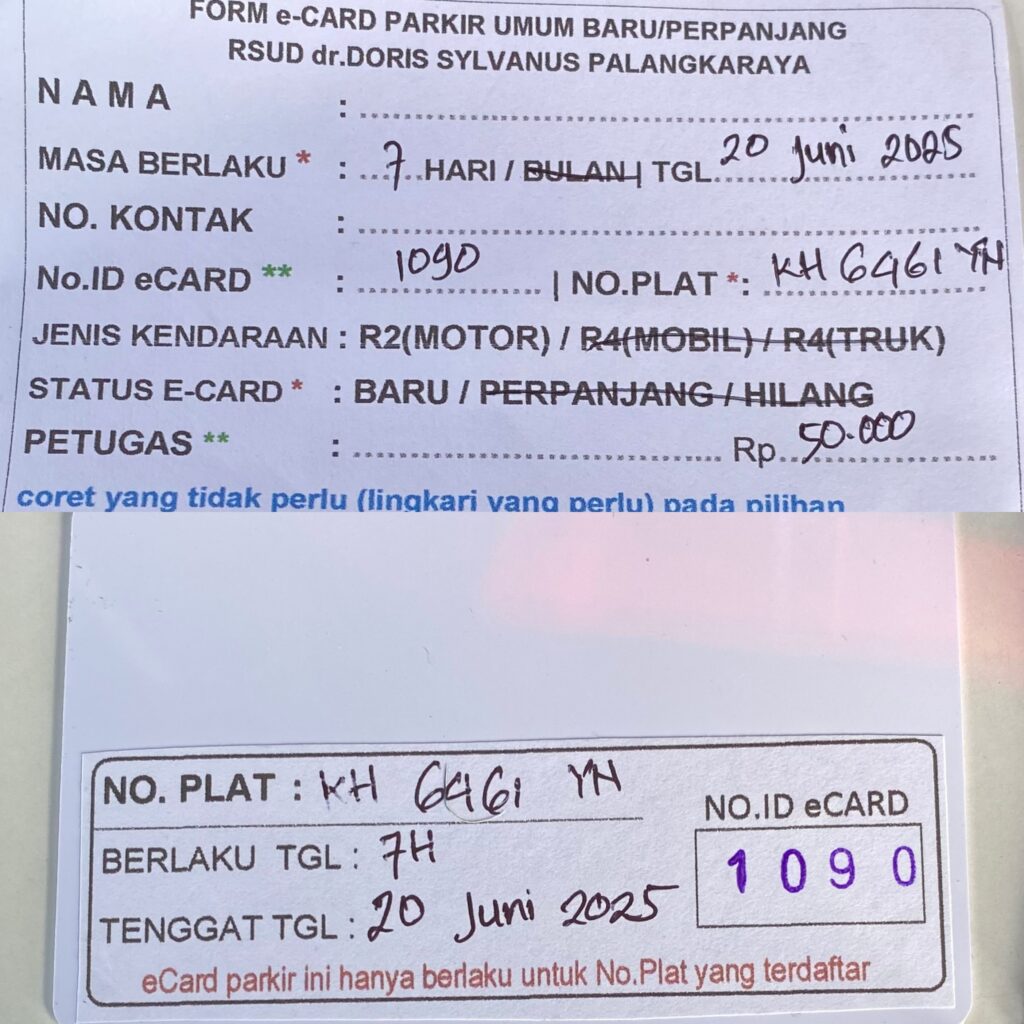 FORM e-CARD PARKIR UMUM BARU/PERPANJANG
RSUD dr.DORIS SYLVANUS PALANGKARAYA
N A M A :
MASA BERLAKU * : 7 HARI / BULAN | TGL 20 Juni 2025
NO. KONTAK :
No.ID eCARD ** : 1090 | NO.PLAT *: KH 6461 YN
JENIS KENDARAAN : R2(MOTOR) / R4(MOBIL) / R4(TRUK)
STATUS E-CARD * : BARU / PERPANJANG / HILANG
PETUGAS ** : Rp 50.000
coret yang tidak perlu (lingkari yang perlu) pada pilihan
NO. PLAT : KH 6461 YN
NO.ID eCARD
BERLAKU TGL : 7H
1090
TENGGAT TGL : 20 Juni 2025
eCard parkir ini hanya berlaku untuk No.Plat yang terdaftar